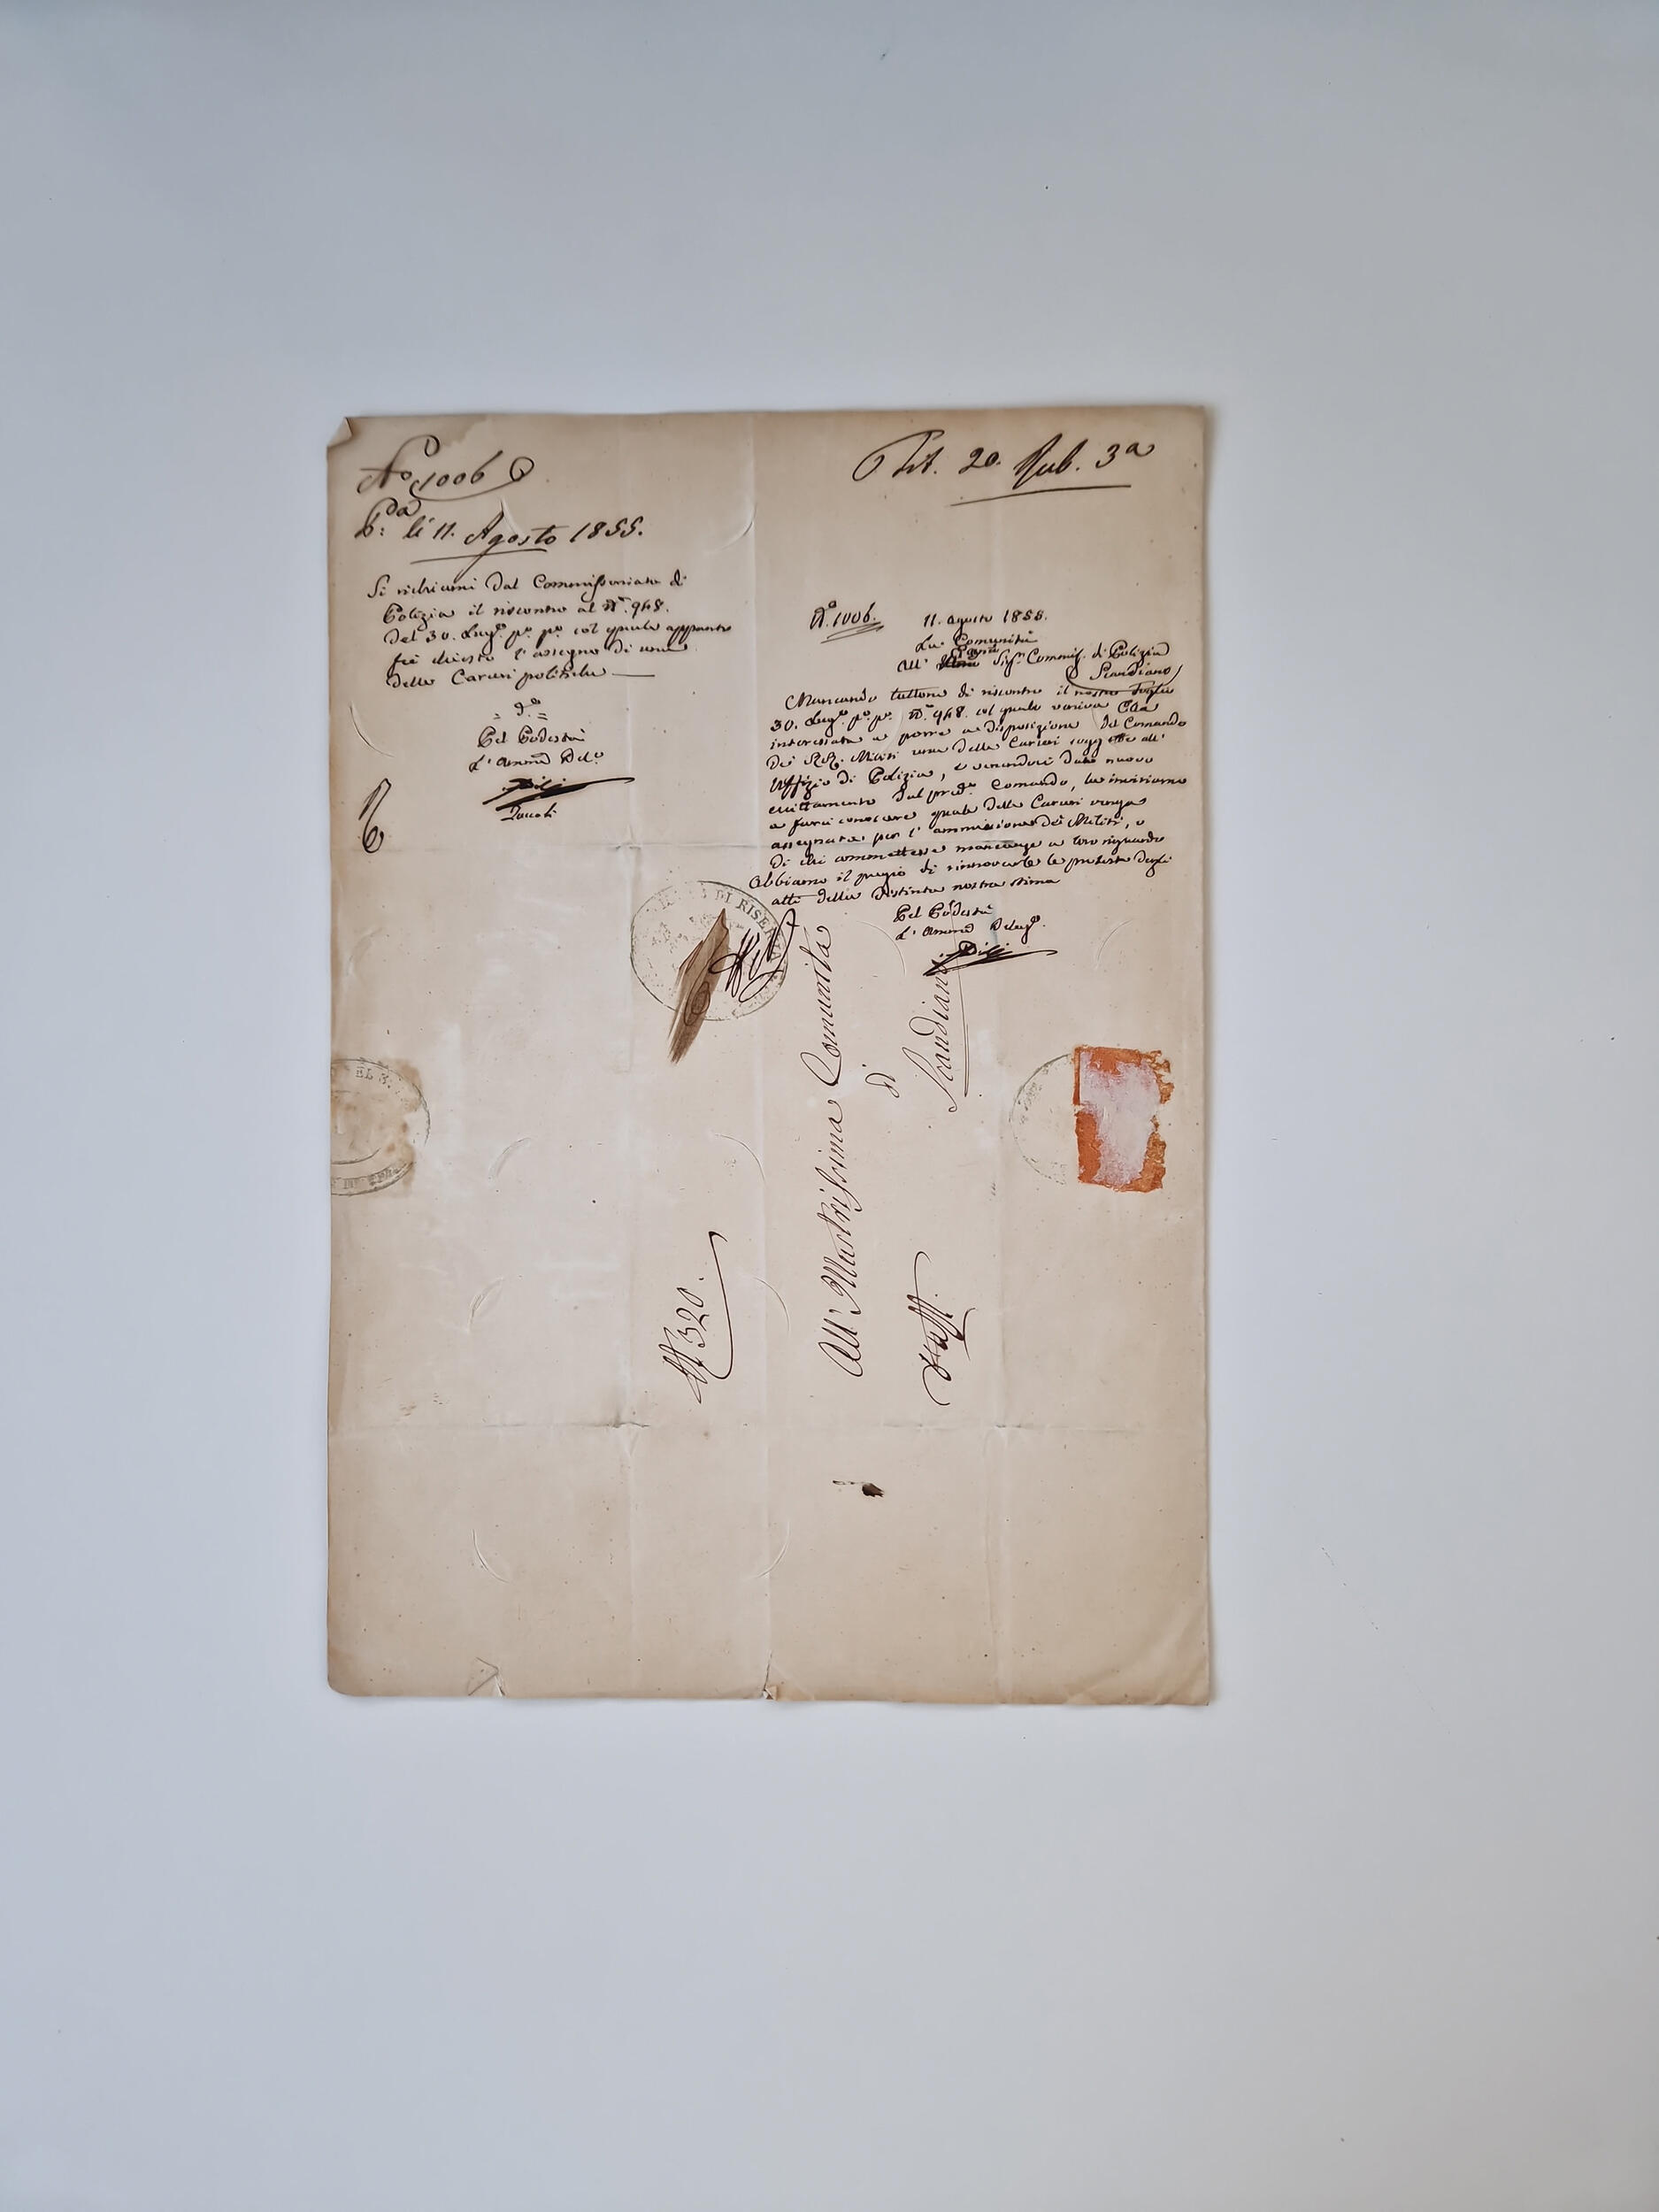 No 1006
P.da li 11. Agosto 1855.
Si richiami dal Commissariato di
Polizia il riscontro al N.° 948.
del 30. Lug.° p.° p.° col quale appunto
fù chiesto l'assegno di una
delle Carceri politiche —
= d.° =
Pel Podestà
L'Ammõ Del.°
Tit. 20. Rub. 3a
N.° 1006. 11. Agosto 1855.
La Comunità
All' Sig.r Commiss. di Polizia
Scandiano
Mancando tuttora di riscontro il nostro foglio
30. Lug.° p.° p.° N.° 948. col quale veniva
interessata a porre a disposizione del Comando
dei RR. Militi una delle Carceri soggette all'
Uffizio di Polizia, e venendoci dato nuovo
eccitamento dal pred.° Comando, la invitiamo
a farci conoscere quale delle Carceri venga
assegnata per l'ammissione dei Militi, e
di chi commettere a loro riguardo
Abbiamo il pregio di rinnovarle le proteste degli
atti della distinta nostra stima
Pel Podestà
L'Ammõ Deleg.°
DI RISE
EL 3.
N 320.
All' Illustrissima Comunità
di
Scandiano